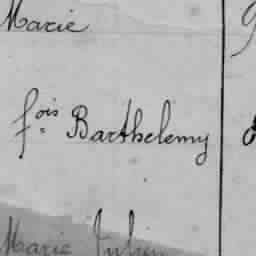 Marie
f.ois Barthelemy
Marie Julien